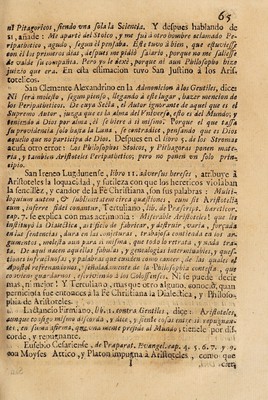 65
ni Pitagoricos, siendo vna sola la Sciencia. Y despues hablando de
si, añade: Me aparté del Stoico, y me fui à otro hombre aclamado Pe-
ripathetico, agudo, segun èl pensaba. Este tuvo à bien, que estuviesse
con èl los primeros dias, despues me pidiò salario, porque no me saliesse
de valde su compañia. Pero yo le dexè, porque ni aun Philosopho hize
juizio que era. En esta estimacion tuvo San Justino à los Aris-
totelicos.
San Clemente Alexandrino en la Admonicion à los Gentiles, dice:
Ni serà molesto, segun pienso, llegando à este lugar, hazer mencion de
los Peripatheticos. De cuya Secta, el Autor ignorante de aquel que es el
Supremo Autor, juzga que es la alma del Vniverso, esto es del Mundo, y
teniendo à Dios por alma, èl se hiere à sì mismo. Porque el que tassa
su providencia solo hasta la Luna, se contradice, pensando que es Dios
aquello que no participa de Dios. Despues en el libro 5. de los Stroma
acusa otro error: Las Philosophos Stoicos, y Pithagora ponen mate-
ria, y tambien Aristoteles Peripathetico; pero no ponen un solo prin-
cipio.
San Ireneo Lugdunense, libro 11. adversus hereses, atribuye à
Aristoteles la loquacidad, y sutileza con que los heretIcos violaban
la sencillèz, y candor de la Fè Christiana, son sus palabras: Multi-
loquium autem, & subtilitatem circa quæstiones, cum sit Aristotelis
cum, inferre fidei conantur. Tertuliano, lib. de Præscrip. hæretIcor.
cap. 7. se explica con mas acrimonia: Miserable Aristoteles! que les
instituyò la Dialectica, artificio de fabricar, y destruir, varia, forçada
en las sentencias, dura en las conjeturas, trabajosa contienda en los ar-
gumentos, molesta aun para sì misma, que todo lo retrata, y nada tra-
ta. De aqui nacen aquellas fabulas, y genealogias interminables, y quest-
tiones infructuosas, y palabras que cunden como cancer, de las quales el
Apostol refrenandonos, señaladamente de la Philosophia contesta, que
conviene guardarnos, escriviendo à los Colossenses. Ni se puede decir
mas, ni mejor: Y Tertuliano, mas que otro alguno, conociò, quan
perniciosa fue entonces à la Fè Christiana la Dialectica, y Philoso-
phia de Aristoteles.
Lactancio Firmiano, lib. 1. contra Gentiles, dice: Aristoteles,
aunque consigo mismo discorda, y dice, y siente cosas entre sì repugnan-
tes, en suma afirma, que una mente preside al Mundo; tienele por dis-
corde, y repugnante.
Eusebio Cesariense, de Præparat. Evangel. cap. 4. 5. 6. 7. y 9.
con Moyses Attico, y Platon impugna à Aristoteles, como que
I